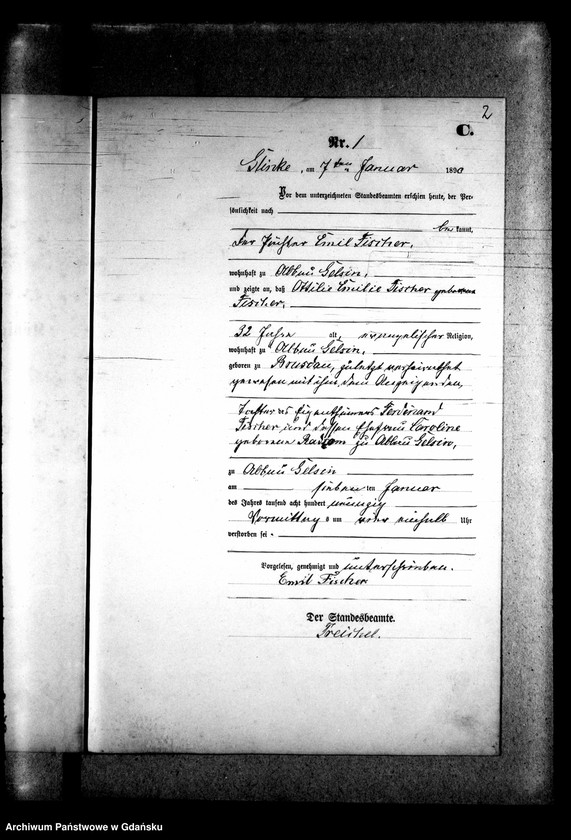 2
C.
Nr. 1
Glinke, am 7ten Januar 1890
Vor dem unterzeichneten Standesbeamten erschien heute, der Per-
sönlichkeit nach
bekannt,
der Emil Fischer,
wohnhaft zu Abbau Gelsin,
und zeigte an, daß Ottilie Emilie Fischer geborene
Fischer,
32 Jahre alt, evangelischer Religion,
wohnhaft zu Abbau Gelsin,
geboren zu zuletzt verheirathet
gewesen mit ihm, dem Anzeigenden,
Tochter des Eigenthümers Ferdinand
Fischer, und dessen Ehefrau Caroline
geborene zu Abbau Gelsin,
zu Abbau Gelsin
am sieben ten Januar
des Jahres tausend acht hundert neunzig
Vormittags um vier einhalb Uhr
verstorben sei.
Vorgelesen, genehmigt und unterschrieben.
Emil Fischer
Der Standesbeamte.
Treichel.
Archiwum Państwowe w Gdańsku